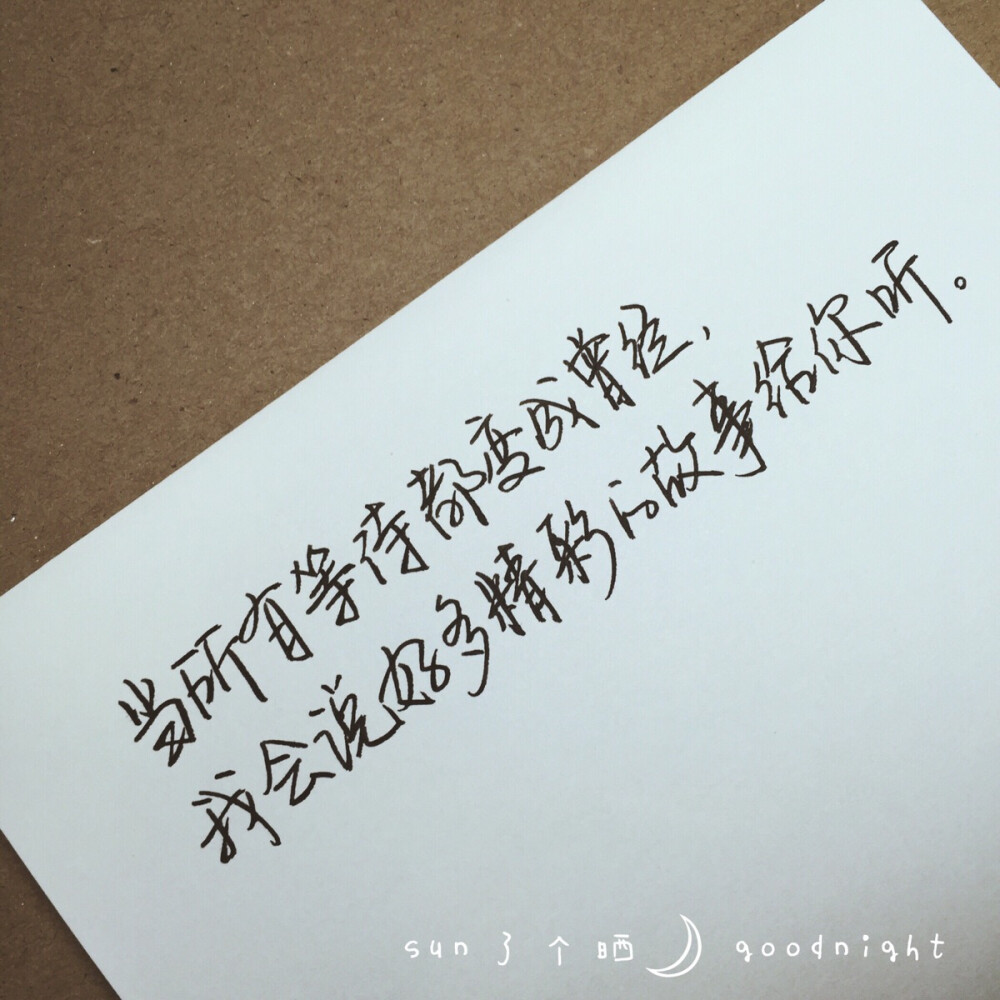 当所有等待都变成曾经,
我会说好多精彩的故事给你听。
sun了个晒 goodnight